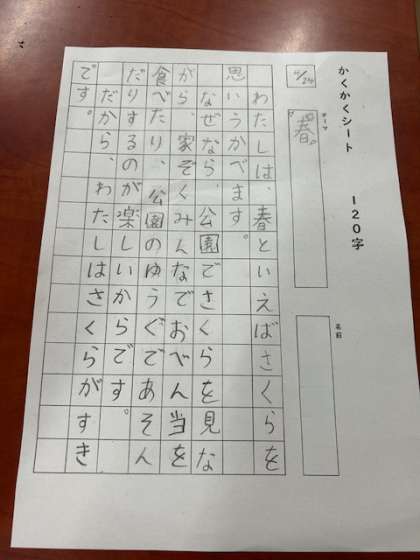 かくかくシート 120字
4/24
テーマ
春
名前
わたしは、春といえばさくらを
思いうかべます。
なぜなら、公園でさくらを見な
がら、家ぞくみんなでおべん当を
食べたり、公園のゆうぐであそん
だりするのが楽しいからです。
だから、わたしはさくらがすき
です。